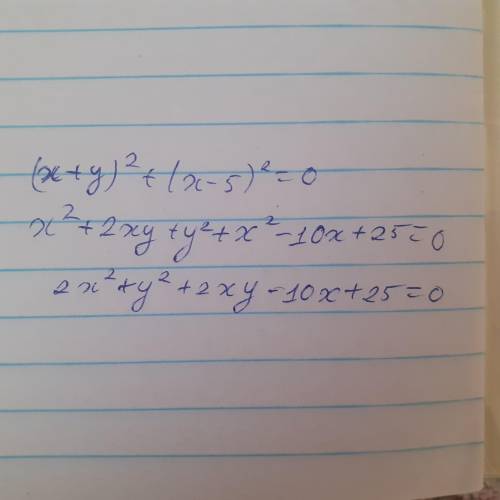 (x+y)²+(x-5)²=0
x²+2xy+y²+x²-10x+25=0
2x²+y²+2xy-10x+25=0